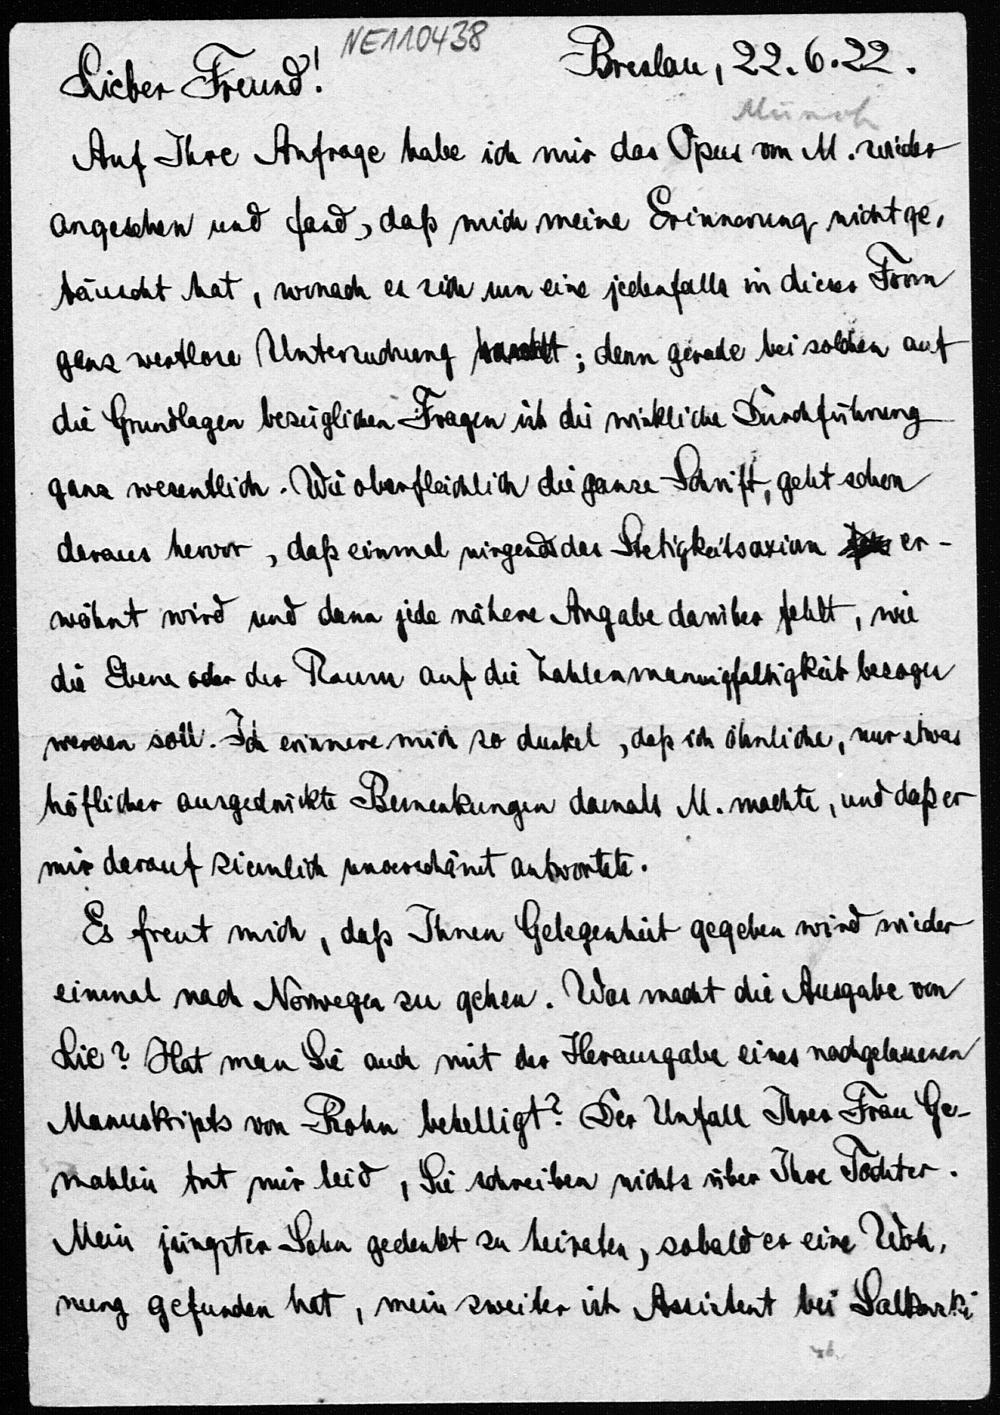 NE110438
Lieber Freund! Breslau, 22.6.22.
Auf Ihre Anfrage habe ich mir das Opus von M. wieder
angesehen und fand, daß mich meine Erinnerung nicht ge,
täuscht hat, wonach es sich um eine jedenfalls in dieser Form
ganz wertlose Untersuchung handelt; denn gerade bei solchen auf
die Grundlagen bezüglichen Fragen ist die wirkliche Durchführung
ganz wesentlich. Wie oberflächlich die ganze Schrift, geht schon
daraus hervor, daß einmal nirgends das Stetigkeitsaxiom er-
wähnt wird und dann jede nähere Angabe darüber fehlt, wie
die Ebene oder der Raum auf die Zahlenmannigfaltigkeit bezogen
werden soll. Ich erinnere mich so dunkel, daß ich ähnliche, nur etwas
höflicher ausgedrückte Bemerkungen damals M. machte, und daß er
mir darauf ziemlich unverschämt antwortete.
Es freut mich, daß Ihnen Gelegenheit gegeben wird wieder
einmal nach Norwegen zu gehen. Was macht die Ausgabe von
Lie? Hat man Sie auch mit der Herausgabe eines nachgelassenen
Manuskripts von Rohn behelligt? Der Unfall Ihrer Frau Ge-
mahlin tut mir leid, Sie schreiben nichts über Ihre Töchter.
Mein jüngster Sohn gedenkt zu heiraten, sobald er eine Woh,
nung gefunden hat, mein zweiter ist Assistent bei Salkowski